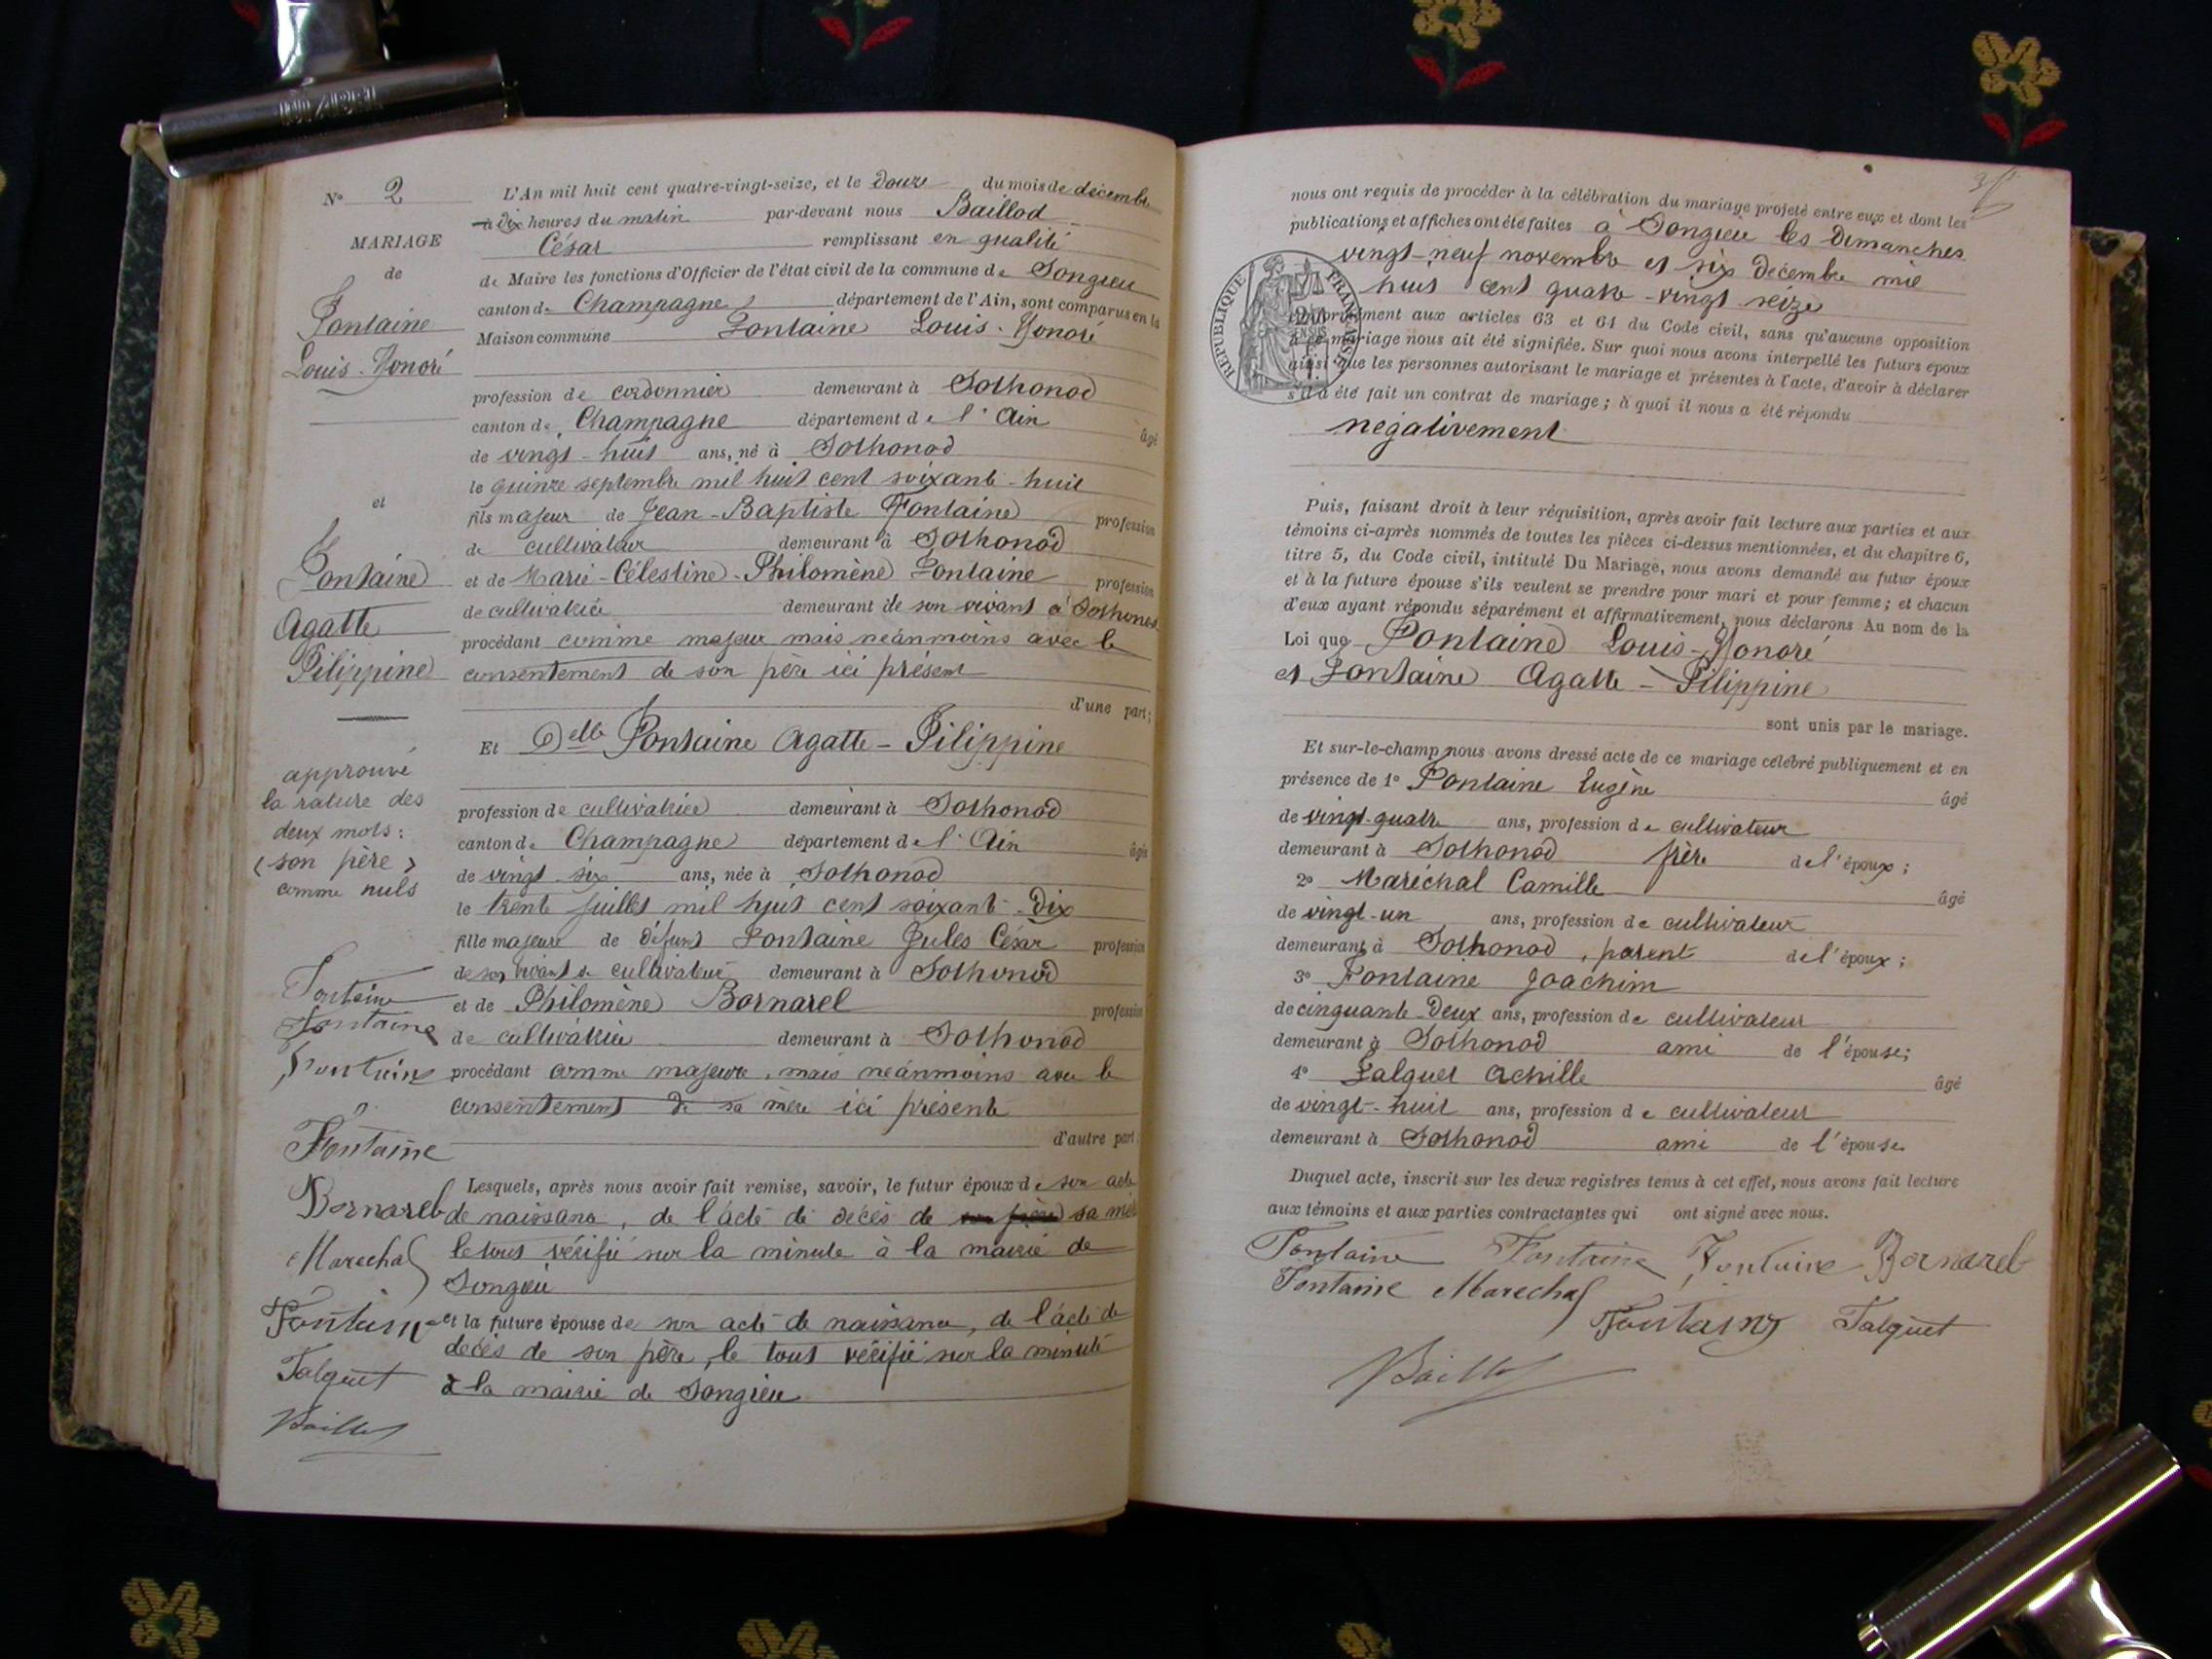 N° 2
MARIAGE
de
Fontaine
Louis-Honoré
et
Fontaine
Agatte
Pilippine
approuvé
la rature des
deux mots:
(son père)
comme nuls
Fontaine
Fontaine
Fontaine
Fontaine
Bornarel
Marechal
Fontaine
Falquet
Baillod
L'An mil huit cent quatre-vingt-seize, et le douze du mois de décembre
à dix heures du matin par-devant nous Baillod
César remplissant en qualité
de Maire les fonctions d'Officier de l'état civil de la commune de Songieu
canton de Champagne, département de l'Ain, sont comparus en la
Maison commune Fontaine Louis-Honoré
profession de cordonnier demeurant à Sothonod
canton de Champagne département de l'Ain âgé
de vingt-huit ans, né à Sothonod
le quinze septembre mil huit cent soixante-huit
fils majeur de Jean-Baptiste Fontaine profession
de cultivateur demeurant à Sothonod
et de Marie-Célestine-Philomène Fontaine profession
de cultivatrice demeurant de son vivant à Sothonod
procédant comme majeur mais néanmoins avec le
consentement de son père ici présent
d'une part;
Et Delle Fontaine Agatte-Pilippine
profession de cultivatrice demeurant à Sothonod
canton de Champagne département de l'Ain âgée
de vingt-six ans, née à Sothonod
le trente juillet mil huit cent soixante-dix
fille majeure de défunt Fontaine Jules César profession
de son vivant de cultivateur demeurant à Sothonod
et de Philomène Bornarel profession
de cultivatrice demeurant à Sothonod
procédant comme majeure, mais néanmoins avec le
consentement de sa mère ici présente
d'autre part
Lesquels, après nous avoir fait remise, savoir, le futur époux de son acte
de naissance, de l'acte de décès de son père sa mère
le tout vérifié sur la minute à la mairie de
Songieu
et la future épouse de son acte de naissance, de l'acte de
décès de son père, le tout vérifié sur la minute
à la mairie de Songieu
nous ont requis de procéder à la célébration du mariage projeté entre eux et dont les
publications et affiches ont été faites à Songieu les dimanches
vingt-neuf novembre et six décembre mil
huit cent quatre-vingt seize
RÉPUBLIQUE FRANÇAISE
conformément aux articles 63 et 64 du Code civil, sans qu'aucune opposition
à ce mariage nous ait été signifiée. Sur quoi nous avons interpellé les futurs époux
ainsi que les personnes autorisant le mariage et présentes à l'acte, d'avoir à déclarer
s'il a été fait un contrat de mariage; à quoi il nous a été répondu
négativement
Puis, faisant droit à leur réquisition, après avoir fait lecture aux parties et aux
témoins ci-après nommés de toutes les pièces ci-dessus mentionnées, et du chapitre 6,
titre 5, du Code civil, intitulé Du Mariage, nous avons demandé au futur époux
et à la future épouse s'ils veulent se prendre pour mari et pour femme; et chacun
d'eux ayant répondu séparément et affirmativement, nous déclarons Au nom de la
Loi que Fontaine Louis-Honoré
et Fontaine Agatte-Pilippine
sont unis par le mariage.
Et sur-le-champ nous avons dressé acte de ce mariage célébré publiquement et en
présence de 1° Fontaine Eugène âgé
de vingt-quatre ans, profession de cultivateur
demeurant à Sothonod frère de l'époux;
2° Maréchal Camille âgé
de vingt-un ans, profession de cultivateur
demeurant à Sothonod, parent de l'époux;
3° Fontaine Joachim
de cinquante-deux ans, profession de cultivateur
demeurant à Sothonod ami de l'épouse;
4° Falquet Achille âgé
de vingt-huit ans, profession de cultivateur
demeurant à Sothonod ami de l'épouse.
Duquel acte, inscrit sur les deux registres tenus à cet effet, nous avons fait lecture
aux témoins et aux parties contractantes qui ont signé avec nous.
Fontaine Fontaine Fontaine Bornarel
Fontaine Marechal
Fontaine Falquet
Baillod